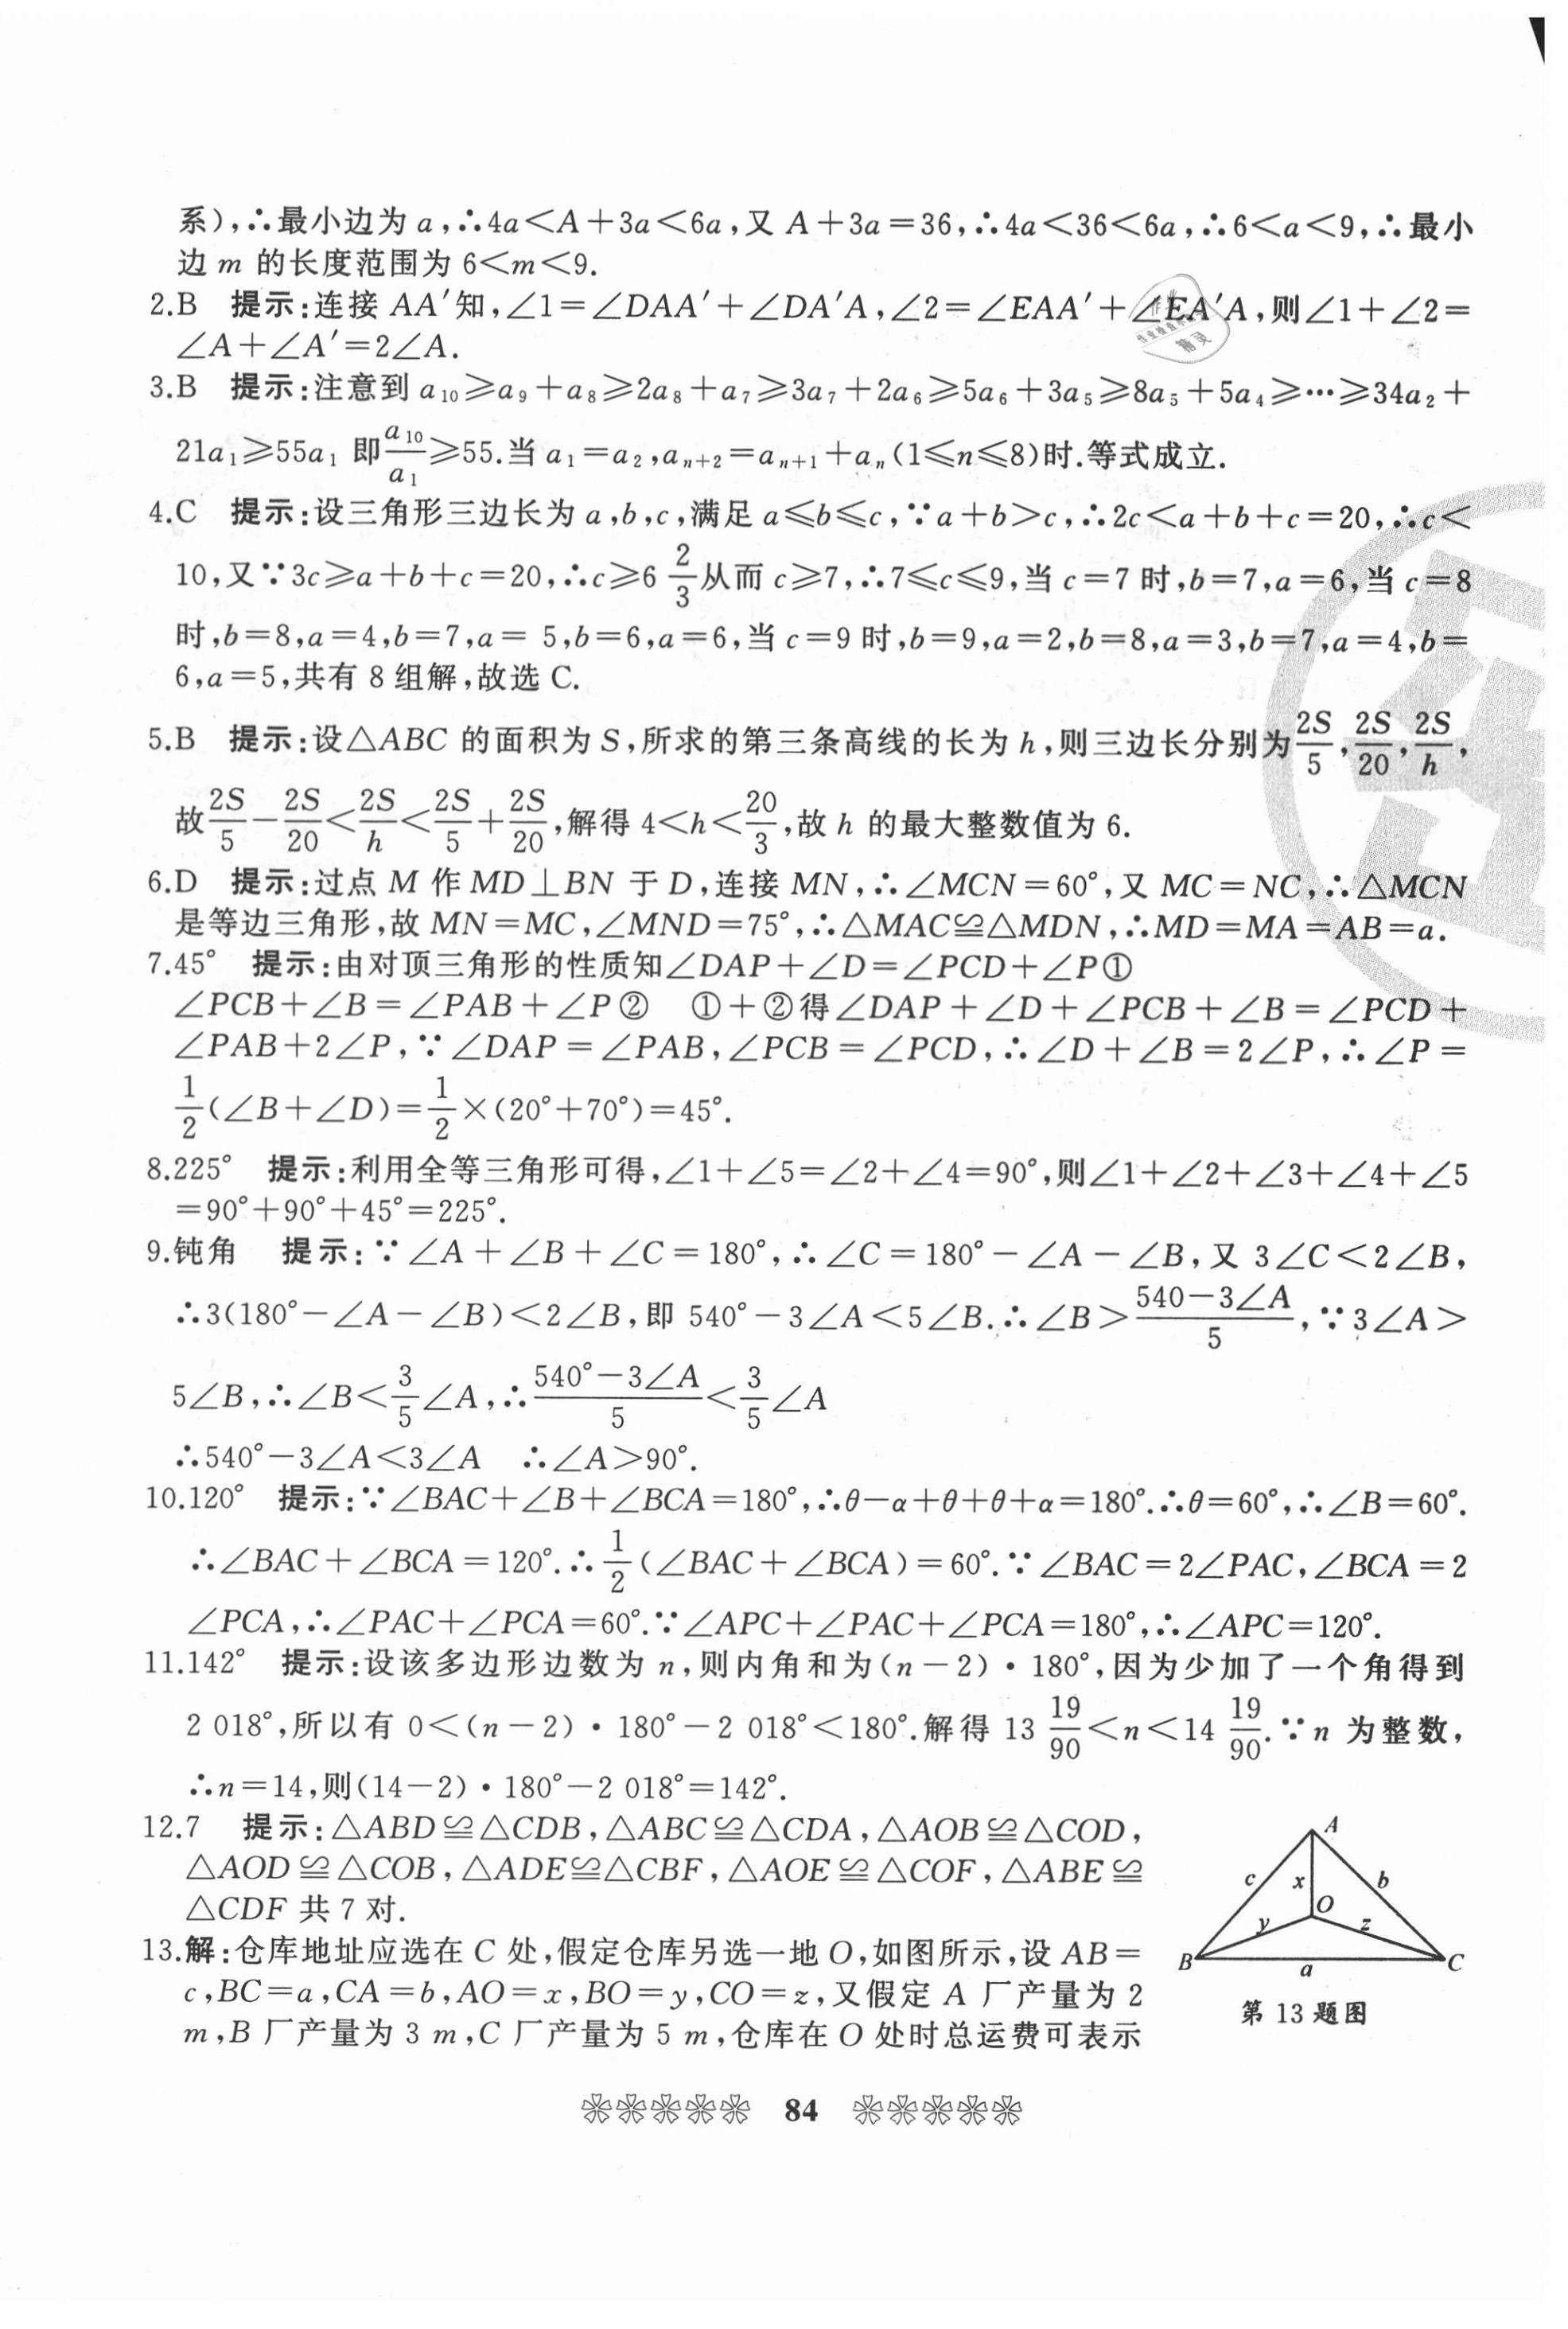 系),∴最小边为 a,∴4a<A+3a<6a,又 A+3a=36,∴4a<36<6a,∴6<a<9,∴最小
边 m 的长度范围为 6<m<9.
2.B 提示:连接 AA′知,∠1=∠DAA′+∠DA′A,∠2=∠EAA′+∠EA′A,则∠1+∠2=
∠A+∠A′=2∠A.
3.B 提示:注意到 a₁₀≥a₉+a₈≥2a₈+a₇≥3a₇+2a₆≥5a₆+3a₅≥8a₅+5a₄≥…≥34a₂+
21a₁≥55a₁ 即a₁₀/a₁≥55.当 a₁=a₂,aₙ₊₂=aₙ₊₁+aₙ(1≤n≤8)时.等式成立.
4.C 提示:设三角形三边长为 a,b,c,满足 a≤b≤c,∵a+b>c,∴2c<a+b+c=20,∴c<
10,又∵3c≥a+b+c=20,∴c≥6 2/3从而 c≥7,∴7≤c≤9,当 c=7 时,b=7,a=6,当 c=8
时,b=8,a=4,b=7,a= 5,b=6,a=6,当 c=9 时,b=9,a=2,b=8,a=3,b=7,a=4,b=
6,a=5,共有 8 组解,故选 C.
5.B 提示:设△ABC 的面积为 S,所求的第三条高线的长为 h,则三边长分别为2S/5,2S/20,2S/h,
故2S/5−2S/20<2S/h<2S/5+2S/20,解得 4<h<20/3,故 h 的最大整数值为 6.
6.D 提示:过点 M 作 MD⊥BN 于 D,连接 MN,∴∠MCN=60°,又 MC=NC,∴△MCN
是等边三角形,故 MN=MC,∠MND=75°,∴△MAC≌△MDN,∴MD=MA=AB=a.
7.45° 提示:由对顶三角形的性质知∠DAP+∠D=∠PCD+∠P①
∠PCB+∠B=∠PAB+∠P② ①+②得∠DAP+∠D+∠PCB+∠B=∠PCD+
∠PAB+2∠P,∵∠DAP=∠PAB,∠PCB=∠PCD,∴∠D+∠B=2∠P,∴∠P=
1/2(∠B+∠D)=1/2×(20°+70°)=45°.
8.225° 提示:利用全等三角形可得,∠1+∠5=∠2+∠4=90°,则∠1+∠2+∠3+∠4+∠5
=90°+90°+45°=225°.
9.钝角 提示:∵∠A+∠B+∠C=180°,∴∠C=180°−∠A−∠B,又 3∠C<2∠B,
∴3(180°−∠A−∠B)<2∠B,即 540°−3∠A<5∠B.∴∠B>(540−3∠A)/5,∵3∠A>
5∠B,∴∠B<3/5∠A,∴(540°−3∠A)/5<3/5∠A
∴540°−3∠A<3∠A ∴∠A>90°.
10.120° 提示:∵∠BAC+∠B+∠BCA=180°,∴θ−α+θ+θ+α=180°.∴θ=60°,∴∠B=60°.
∴∠BAC+∠BCA=120°.∴1/2(∠BAC+∠BCA)=60°.∵∠BAC=2∠PAC,∠BCA=2
∠PCA,∴∠PAC+∠PCA=60°.∵∠APC+∠PAC+∠PCA=180°,∴∠APC=120°.
11.142° 提示:设该多边形边数为 n,则内角和为(n−2)·180°,因为少加了一个角得到
2 018°,所以有 0<(n−2)·180°−2 018°<180°.解得 13 19/90<n<14 19/90.∵n 为整数,
∴n=14,则(14−2)·180°−2 018°=142°.
12.7 提示:△ABD≌△CDB,△ABC≌△CDA,△AOB≌△COD,
△AOD≌△COB,△ADE≌△CBF,△AOE≌△COF,△ABE≌
△CDF 共 7 对.
13.解:仓库地址应选在 C 处,假定仓库另选一地 O,如图所示,设 AB=
c,BC=a,CA=b,AO=x,BO=y,CO=z,又假定 A 厂产量为 2
m,B 厂产量为 3 m,C 厂产量为 5 m,仓库在 O 处时总运费可表示
A
c x b
O
y z
B a C
第 13 题图
84